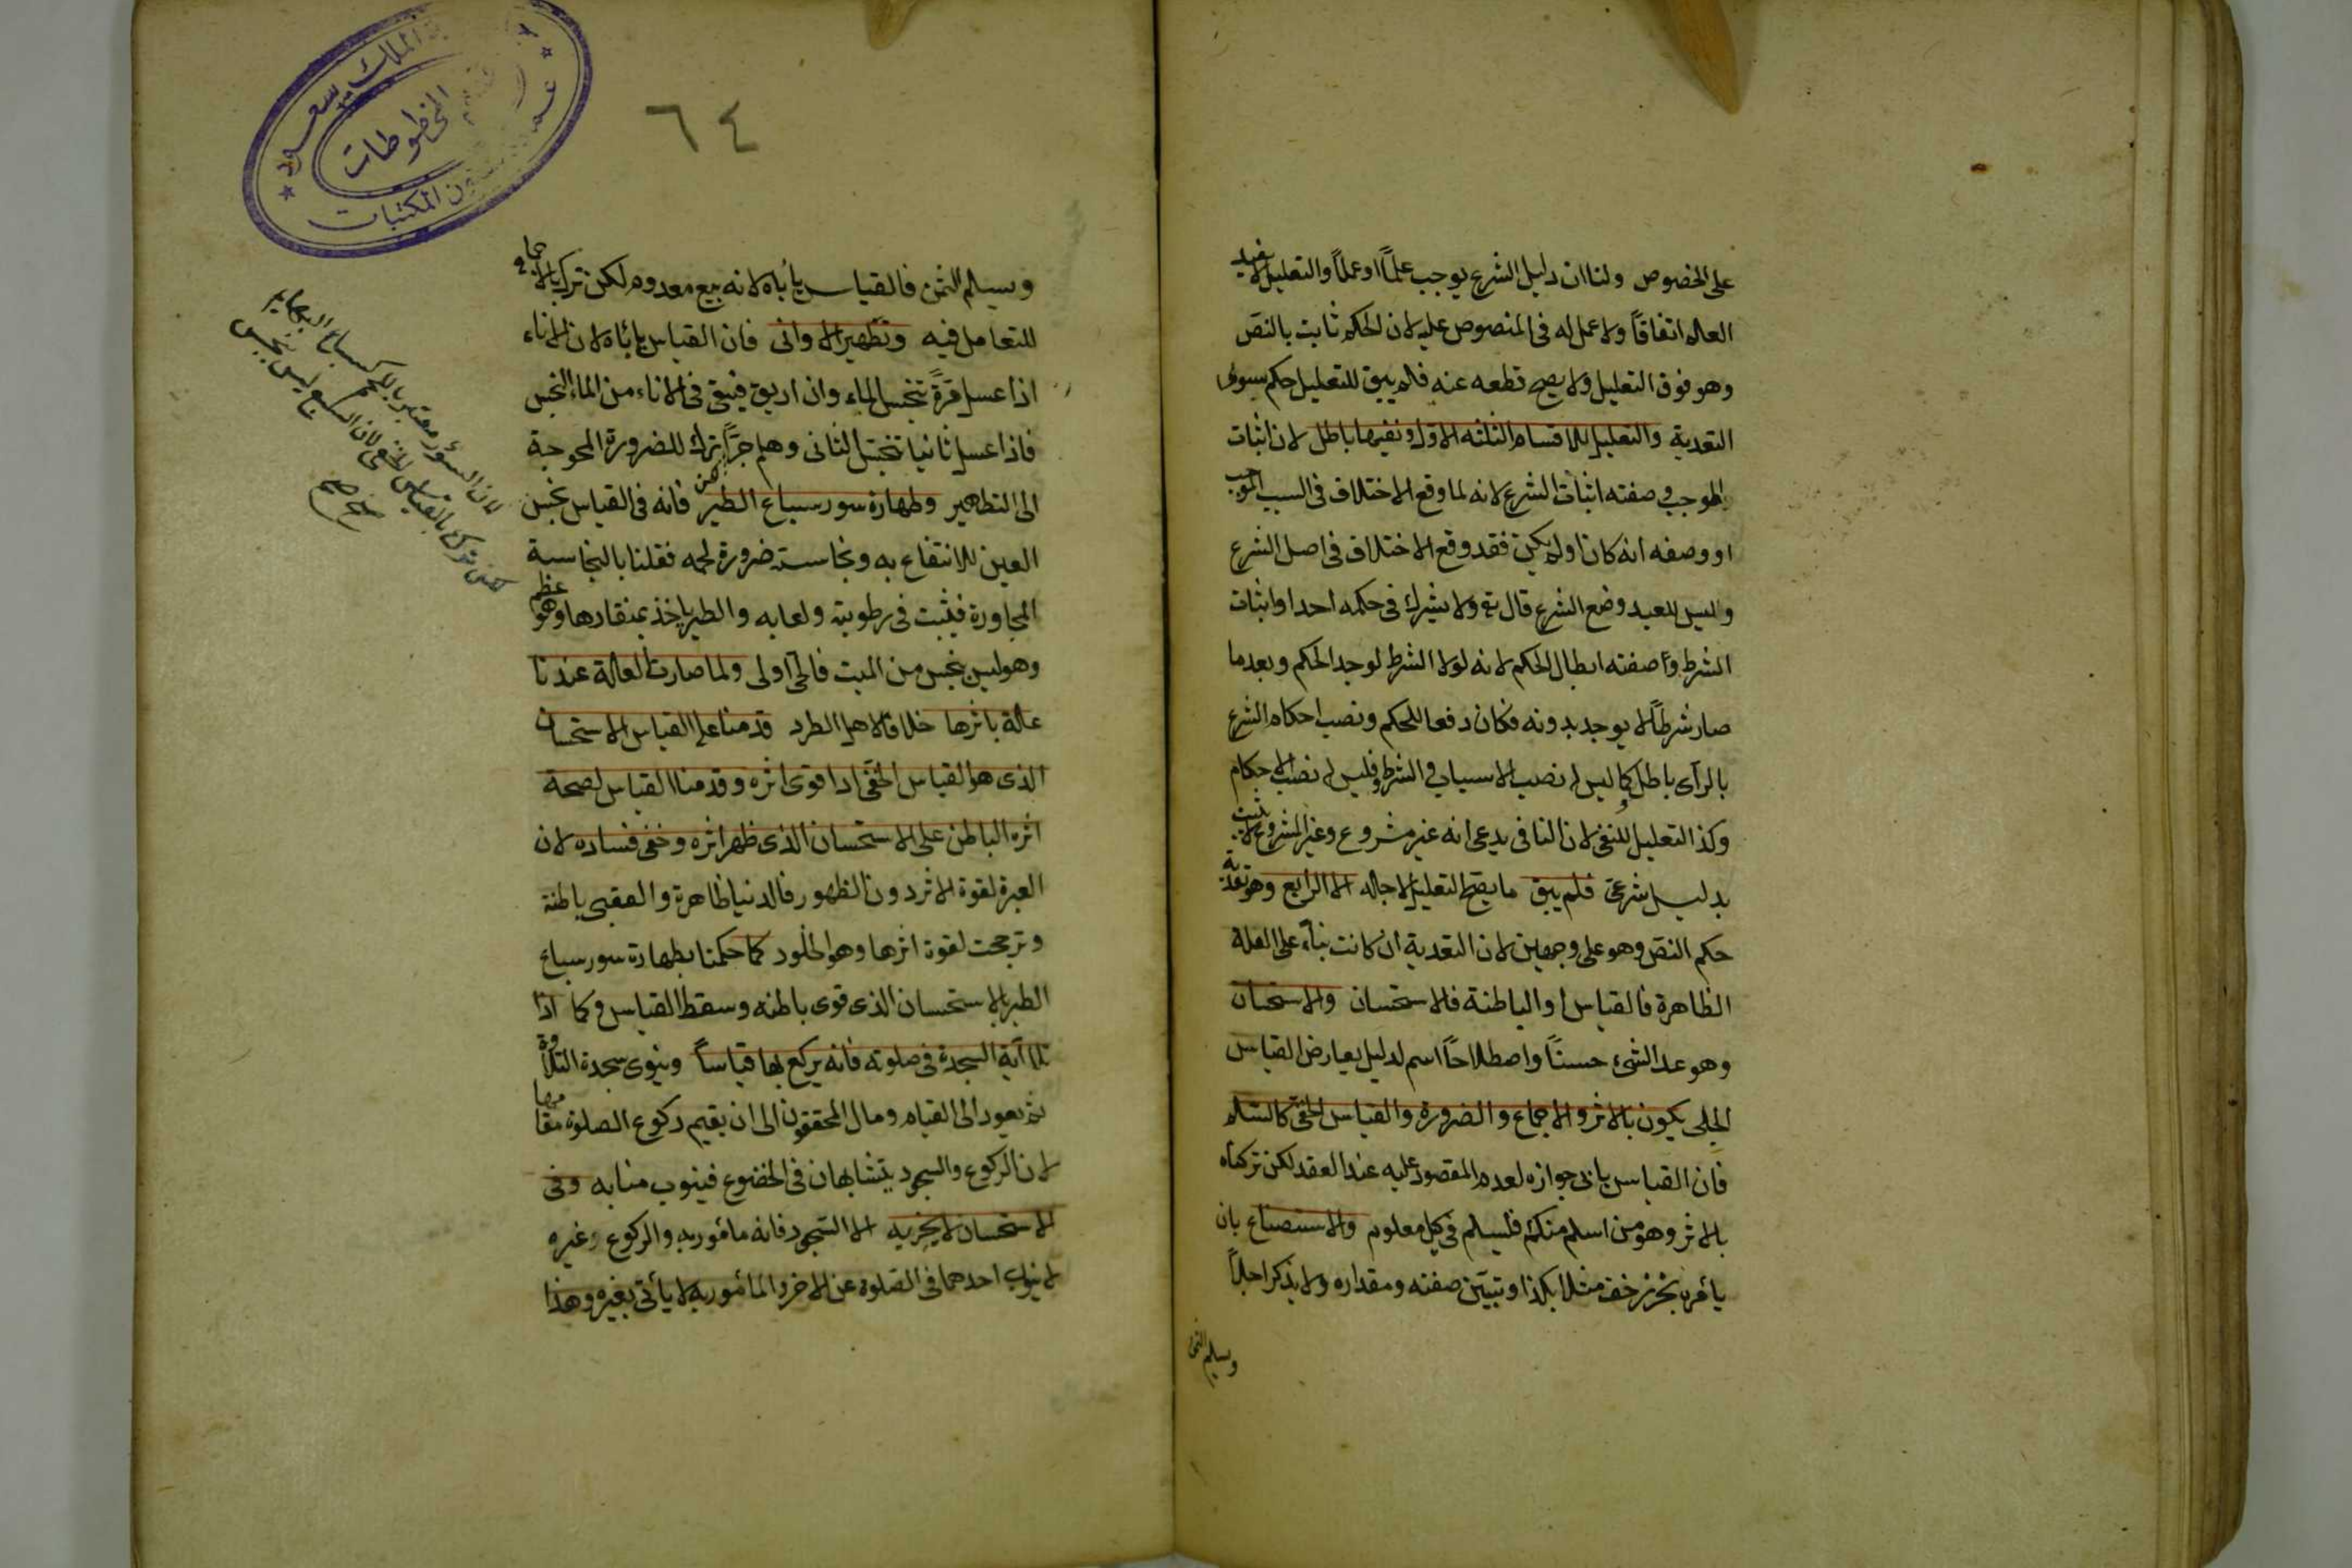 على الخصوص ولنا ان دليل الشرع يوجب علماً او عملاً والتعليل لا يفيد
العلم اتفاقاً ولا عمل له فى المنصوص عليه لان الحكم ثابت بالنص
وهو فوق التعليل ولا يصح قطعه عنه فلم يبق للتعليل حكم سوى
التعدية والتعليل للاقسام الثلثه الاول ونفيها باطل لان اثبات
الموجب وصفته اثبات الشرع لانه لما وقع الاختلاف فى السبب الموجب
او وصفه انه كان او لم يكن فقد وقع الاختلاف فى اصل الشرع
وليس للعبد وضع الشرع قال تع ولا يشرك فى حكمه احدا واثبات
الشرط وصفته ابطال الحكم لانه لولا الشرط لوجد الحكم وبعدما
صار شرطاً لا يوجد بدونه فكان دفعا للحكم ونصب احكام الشرع
بالرأى باطل كما ليس له نصب الاسباب والشرط فليس له نصب الاحكام
وكذا التعليل للنفى لان النافى يدعى انه غير مشروع وغير المشروع لا يثبت
بدليل شرعى فلم يبق ما يصح التعليل لاجله الا الرابع وهو تعدية
حكم النص وهو على وجهين لان التعدية ان كانت بناء على العلة
الظاهرة فالقياس او الباطنة فالاستحسان والاستحسان
وهو عد الشئ حسناً واصطلاحاً اسم لدليل يعارض القياس
الجلى يكون بالاثر والاجماع والضرورة والقياس الخفى كالسلم
فان القياس يابى جوازه لعدم المقصود عليه عند العقد لكن تركناه
بالاثر وهو من اسلم منكم فليسلم فى كيل معلوم والاستصناع بان
يأمر بخرز خف مثلا بكذا وتبيين صفته ومقداره ولا يذكر اجلاً
وسلم الثمن
٦٤
ويسلم الثمن فالقياس يأباه لانه بيع معدوم لكن ترك بالاجماع
للتعامل فيه وتطهير الاوانى فان القياس يأباه لان الاناء
اذا غسل مرة تنجس الماء وان اريق فيبقى فى الاناء من الماء النجس
فاذا غسل ثانيا تنجس الثانى وهلم جرّاً ترك للضرورة المحوجة
الى التطهير وطهارة سور سباع الطير فانه فى القياس نجس
العين للانتفاع به ونجاسته ضرورة لحمه فقلنا بالنجاسة
المجاورة فيثبت فى رطوبته ولعابه والطير ياخذ بمنقارها وهو عظم
وهو ليس بنجس من الميت فالحى اولى ولما صارت العلة عندنا
علة باثرها خلافا لاهل الطرد قدمنا على القياس الاستحسان
الذى هو القياس الخفى اذا قوى اثره وقدمنا القياس لصحة
اثره الباطن على الاستحسان الذى ظهر اثره وخفى فساده لان
العبرة لقوة الاثر دون الظهور فالدنيا ظاهرة والعقبى باطنة
وترجحت لقوة اثرها وهو الخلود كما حكمنا بطهارة سور سباع
الطير بالاستحسان الذى قوى باطنه وسقط القياس وكما اذا
تلا آية السجدة فى صلوته فانه يركع بها قياساً وينوى سجدة التلاوة
ثم يعود الى القيام ومال المحققون الى ان يقيم ركوع الصلوة مقامها
لان الركوع والسجود يتشابهان فى الخضوع فينوب منابه وفى
الاستحسان لا يجزيه الا السجود فانه مأمور به والركوع غيره
لا ينوب احدهما فى الصلوة عن الاخر والمأمور به لا يأتى بغيره وهذا
لان السؤر معتبر باللحم كسباع البهائم
الملك سعود
المخطوطات
شؤون المكتبات